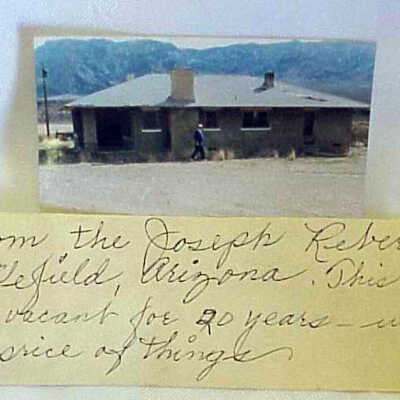 om the Joseph Reber
lefield, Arizona. This
vacant for 20 years —
price of things